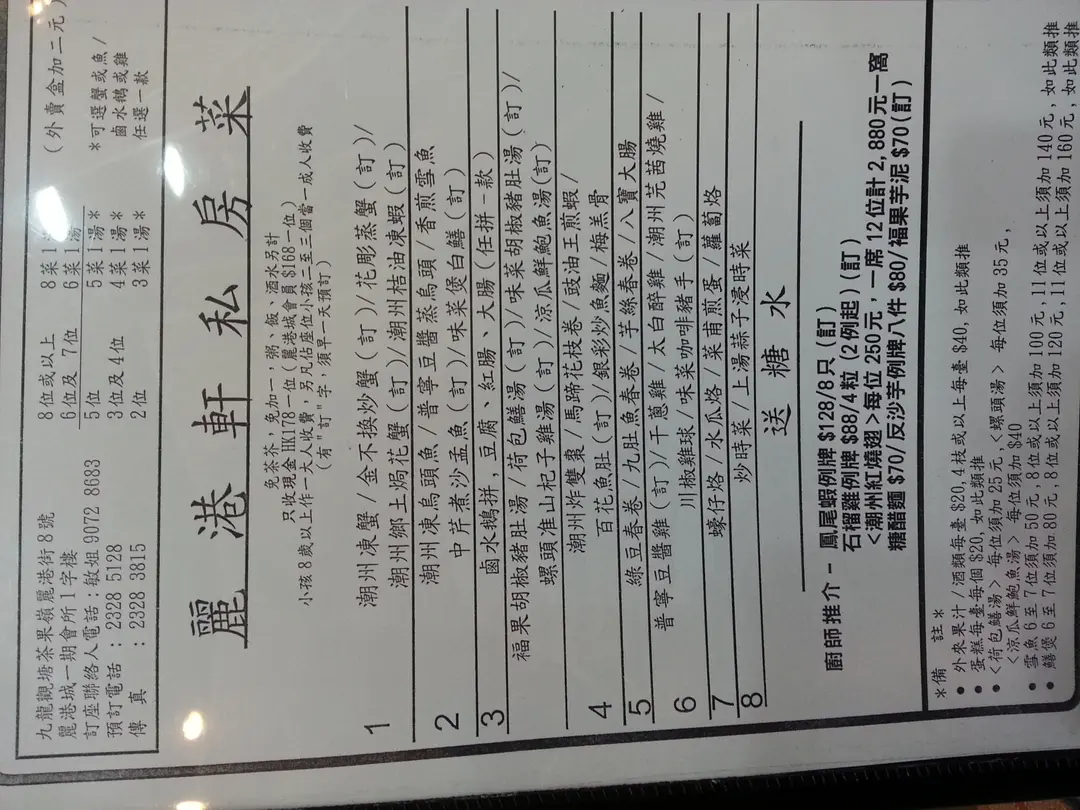 九龍觀塘茶果嶺麗港街8號
麗港城一期會所1字樓
訂座聯絡人電話:敏姐 9072 8683
預訂電話 : 2328 5128
傳 真 : 2328 3815
8位或以上 8菜1湯
6位及7位 6菜1湯
5位 5菜1湯*
3位及4位 4菜1湯*
2位 3菜1湯*
(外賣盒加二元)
*可選蟹或魚/
鹵水鵝或雞
任選一款
麗港軒私房菜
免茶芥,免加一,粥、飯、酒水另計
只收現金HK$178一位(麗港城會員$168一位)
小孩8歲以上作一大人收費,另凡佔座位小孩二至三個當一成人收費
(有"訂"字,須早一天預訂)
1 潮州凍蟹/金不換炒蟹(訂)/花彫蒸蟹(訂)/
潮州鄉土焗花蟹(訂)/潮州桔油凍蝦(訂)
2 潮州凍烏頭魚/普寧豆醬蒸烏頭/香煎雪魚
中芹煮沙孟魚(訂)/味菜煲白鱔(訂)
3 鹵水鵝拼,豆腐、紅腸、大腸(任拼-款)
福果胡椒豬肚湯/荷包鱔湯(訂)/味菜胡椒豬肚湯(訂)/
螺頭准山杞子雞湯(訂)/涼瓜鮮鮑魚湯(訂)
4 潮州炸雙棗/馬蹄花枝卷/豉油王煎蝦/
百花魚肚(訂)/銀彩炒魚麵/梅羔骨
5 綠豆春卷/九肚魚春卷/芋絲春卷/八寶大腸
6 普寧豆醬雞(訂)/干蔥雞/太白醉雞/潮州芫茜燒雞/
川椒雞球/味菜咖啡豬手(訂)
7 蠔仔烙/水瓜烙/菜甫煎蛋/蘿蔔烙
8 炒時菜/上湯蒜子浸時菜
送糖水
廚師推介 - 鳳尾蝦例牌 $128/8只 (訂)
石榴雞例牌 $88/4粒 (2例起) (訂)
<潮州紅燒翅>每位 250元,一席 12位計 2,880元一窩
糖醋麵 $70/反沙芋例牌八件 $80/福果芋泥 $70(訂)
*備 註*
● 外來果汁/酒類每臺 $20,4枝或以上每臺 $40,如此類推
● 蛋糕每臺每個 $20,如此類推
● <荷包鱔湯> 每位須加 25元,<螺頭湯> 每位須加 35元,
<涼瓜鮮鮑魚湯> 每位須加 $40
● 雪魚 6至7位須加 50元,8位或以上須加 100元,11位或以上須加 140元,如此類推
● 鱔煲 6至7位須加 80元,8位或以上須加 120元,11位或以上須加 160元,如此類推